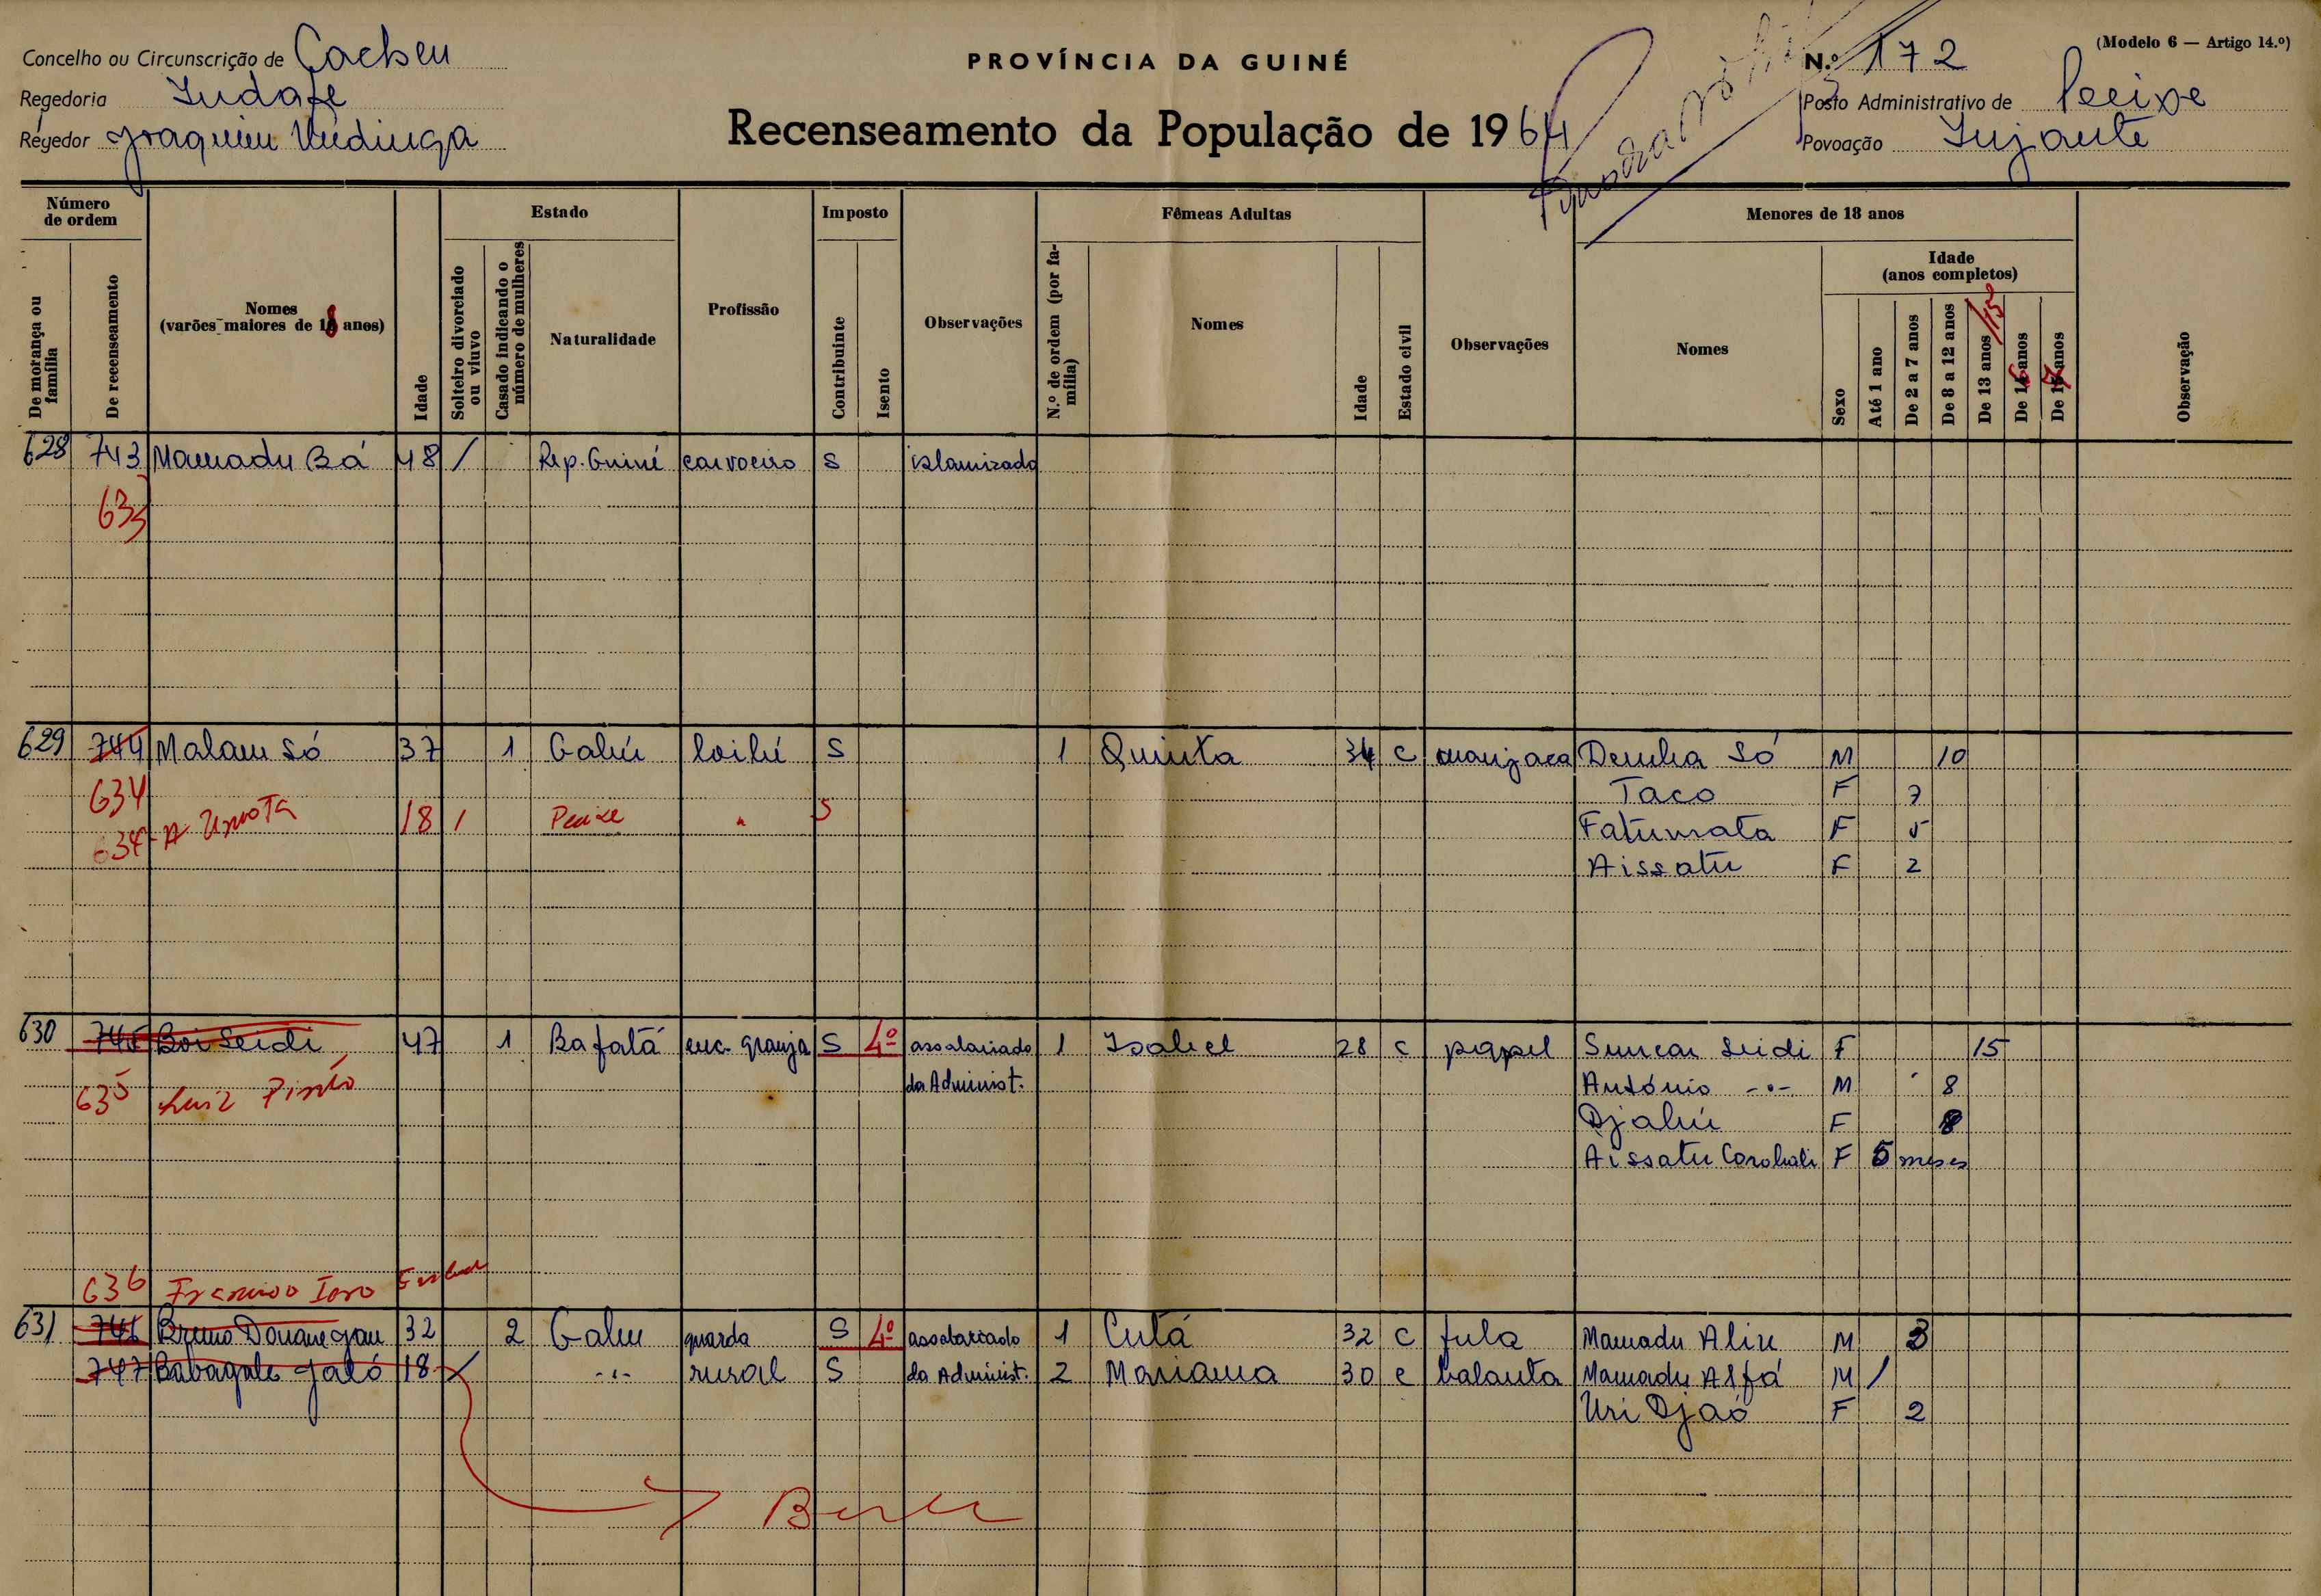 Concelho ou Circunscrição de Cacheu
Regedoria
Regedor Joaquim
PROVÍNCIA DA GUINÉ
Recenseamento da População de 1964
(Modelo 6 — Artigo 14.º)
N.º 172
Posto Administrativo de Pecixe
Povoação Injante
Número de ordem
De morança ou família
De recenseamento
Nomes (varões maiores de 18 anos)
Idade
Estado
Solteiro divorciado ou viuvo
Casado indicando o número de mulheres
Naturalidade
Profissão
Imposto
Contribuinte
Isento
Observações
Fêmeas Adultas
N.º de ordem (por família)
Nomes
Idade
Estado civil
Observações
Menores de 18 anos
Nomes
Sexo
Idade (anos completos)
Até 1 ano
De 2 a 7 anos
De 8 a 12 anos
De 13 anos /15
De 16 anos
De 17 anos
Observação
628 743 Mamadu Bá 48 / Rep. Guiné carvoeiro S islamizado
633
629 744 Malam Só 37 1 Gabú S 1 Quinta 34 C manjaca Demba Só M 10
634 Taco F 7
634-A 18 / Pecixe " S Fatumata F 5
Aissatu F 2
630 745 Boi Seidi 47 1 Bafatá enc. granja S 4º assalariado 1 Isabel 28 C papel Suncar Seidi F 15
635 Luiz Pinto da Administ. António -"- M 8
Djabú F 8
Aissatu Carobali F 5 meses
636
631 746 32 2 Gabu guarda S 4º assalariado 1 Cutá 32 C fula Mamadu Aliu M 3
747 Babagale Jaló 18 / -"- rural S da Administ. 2 Mariama 30 C balanta Mamadu Alfá M /
Uri Djaó F 2